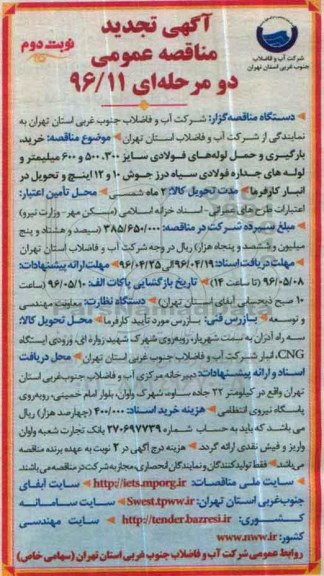 آگهی تجدید
مناقصه عمومی
دو مرحله‌ای ۹۶/۱۱
نوبت دوم
شرکت آب و فاضلاب
جنوب غربی استان تهران
دستگاه مناقصه‌گزار: شرکت آب و فاضلاب جنوب غربی استان تهران به
نمایندگی از شرکت آب و فاضلاب استان تهران موضوع مناقصه: خرید،
بارگیری و حمل لوله‌های فولادی سایز ۳۰۰، ۵۰۰ و ۶۰۰ میلیمتر و
لوله های جداره فولادی سیاه درز جوش ۱۰ و ۱۲ اینچ و تحویل در
انبار کارفرما مدت تحویل کالا: ۲ ماه شمسی محل تأمین اعتبار:
اعتبارات طرح های عمرانی- اسناد خزانه اسلامی (مسکن مهر- وزارت نیرو)
مبلغ سپرده شرکت در مناقصه: ۳۸۵/۶۵۰/۰۰۰ (سیصد و هشتاد و پنج
میلیون و ششصد و پنجاه هزار) ریال در وجه شرکت آب و فاضلاب استان تهران
مهلت دریافت اسناد: ۹۶/۰۴/۱۹ الی ۹۶/۰۴/۲۵ مهلت ارائه پیشنهادات:
۹۶/۰۵/۰۸ (تا ساعت ۱۴) تاریخ بازگشایی پاکات الف: ۹۶/۰۵/۱۰ (ساعت
۱۰ صبح ذیحسابی آبفای استان تهران) دستگاه نظارت: معاونت مهندسی
و توسعه بازرس فنی: بازرس مورد تأیید کارفرما محل تحویل کالا:
سه راه آدران به سمت شهریار، روبه‌روی شهرک شهید زواره ای، ورودی ایستگاه
CNG، انبار شرکت آب و فاضلاب جنوب غربی استان تهران محل دریافت
اسناد و ارائه پیشنهادات: دبیرخانه مرکزی آب و فاضلاب جنوب‌غربی استان
تهران واقع در کیلومتر ۲۲ جاده ساوه، شهرک واوان، بلوار امام خمینی، روبه‌روی
پاسگاه نیروی انتظامی هزینه خرید اسناد: ۴۰۰/۰۰۰ (چهارصد هزار) ریال
می باشد که باید به حساب شماره ۲۷۰۶۹۷۷۳۹ بانک تجارت شعبه واوان
واریز و فیش نقدی ارائه گردد. هزینه درج آگهی در ۲ نوبت به عهده برنده مناقصه
می‌باشد فقط تولیدکنندگان و نمایندگان انحصاری، مجاز به شرکت در مناقصه می‌باشند
سایت ملی مناقصات: http://iets.mporg.ir سایت آبفای
جنوب‌غربی استان تهران: Swest.tpww.ir سایت سامانه
کشوری: http://tender.bazresi.ir سایت مهندسی
کشور: www.nww.ir
روابط عمومی شرکت آب و فاضلاب جنوب غربی استان تهران (سهامی خاص)